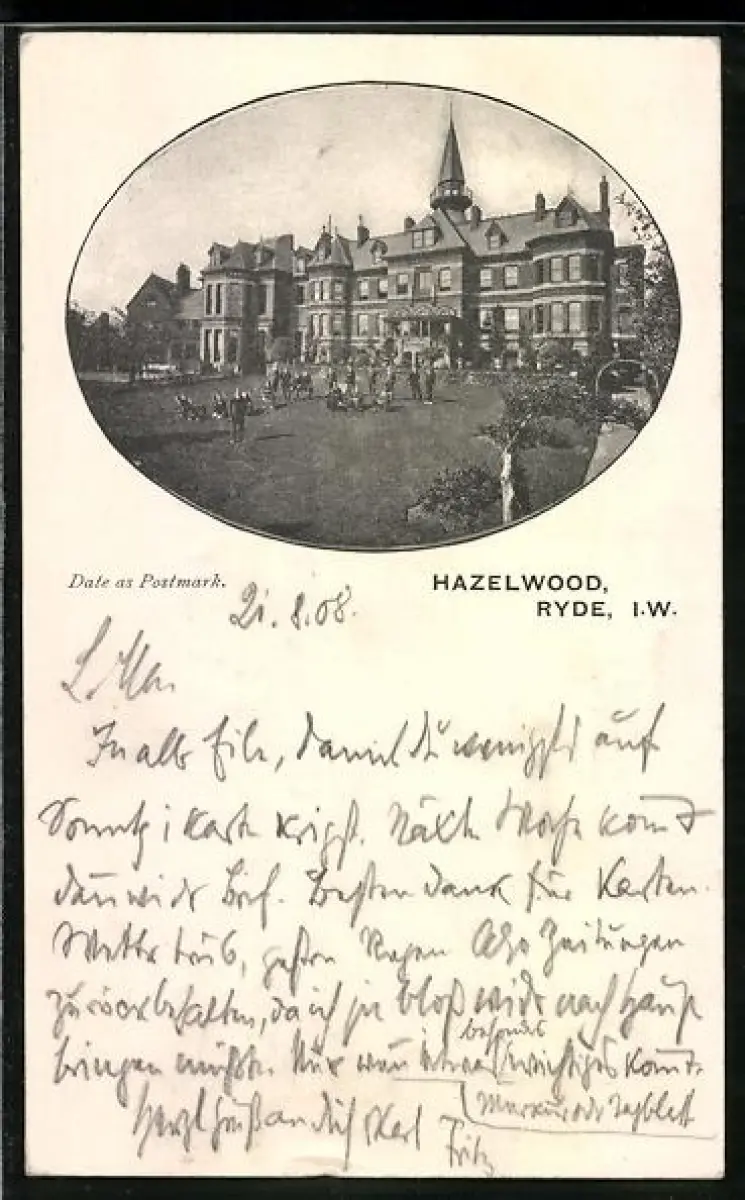 Date as Postmark.
HAZELWOOD,
RYDE, I.W.
21.8.08.
L. Max.
In aller Eile, damit du wenigst auf
Sonntg 1 Karte krigst. Nächste Woche komt
dan wider Brif. Besten dank für Karten.
Wetter trüb, gestern Regen. Also Zeitungen
zurückbehalten, da ich sie bloß wider nach Haus
bringen müsste. Nur wan etwas besonders wichtiges komt.
Merkur oder Tagblatt
Herzl Gruß an dich Karl
Fritz